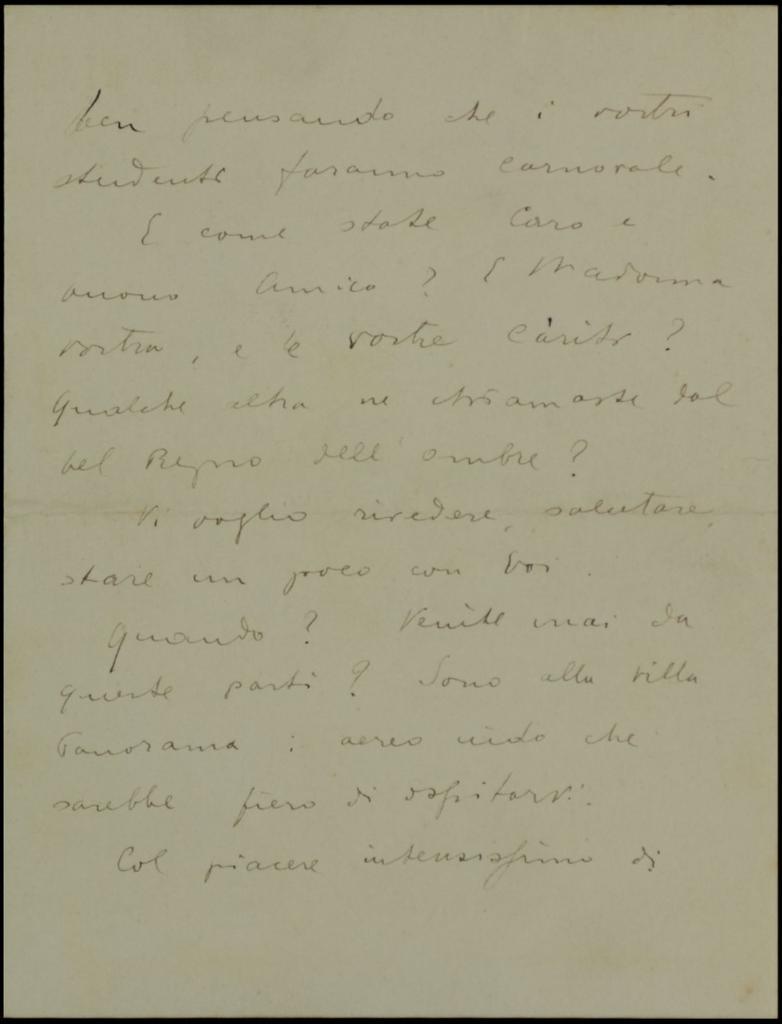 ben pensando che i vostri
studenti faranno carnovale.
E come state Caro e
buono Amico? E Madonna
vostra, e le vostre Cariti?
Qualche altra ne chiamaste dal
bel Regno dell' ombre?
Vi voglio rivedere, salutare,
stare un poco con Voi.
Quando? Venite mai da
queste parti? Sono alla Villa
Panorama: aereo nido che
sarebbe fiero di ospitarvi.
Col piacere intensissimo di